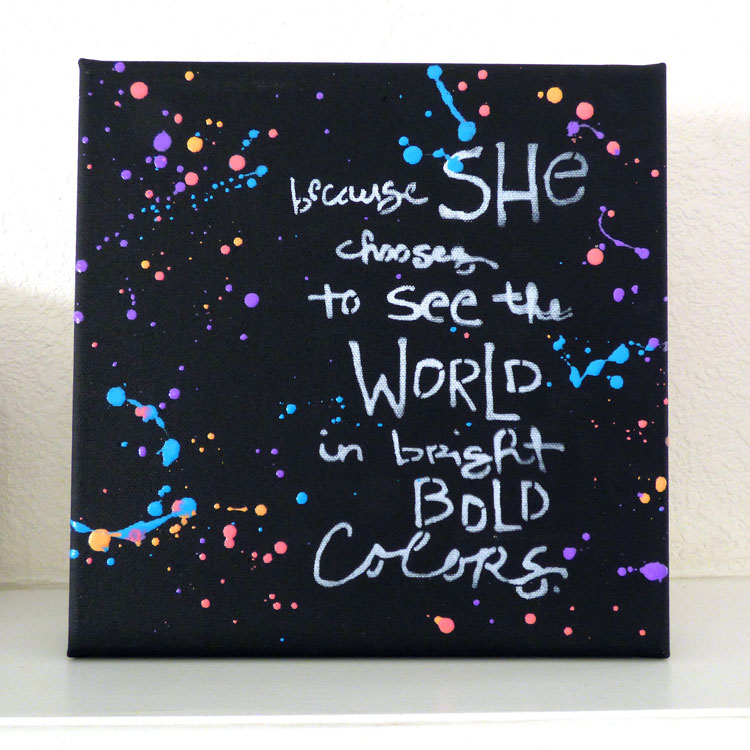 because SHe
chooses
to see the
WORLD
in bright
BOLD
Colors.